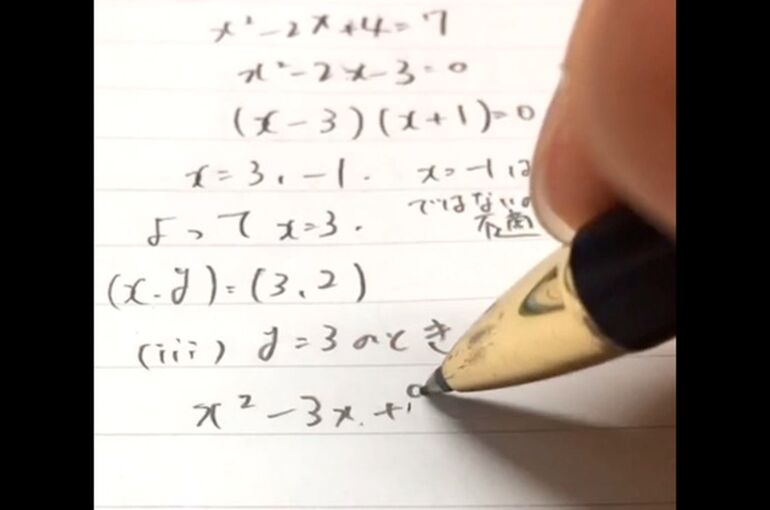 x²-2x+4=7
x²-2x-3=0
(x-3)(x+1)=0
x=3,-1. x=-1は
ではないの
よって x=3. 不適
(x.y)=(3,2)
(iii) y=3のとき
x²-3x+9